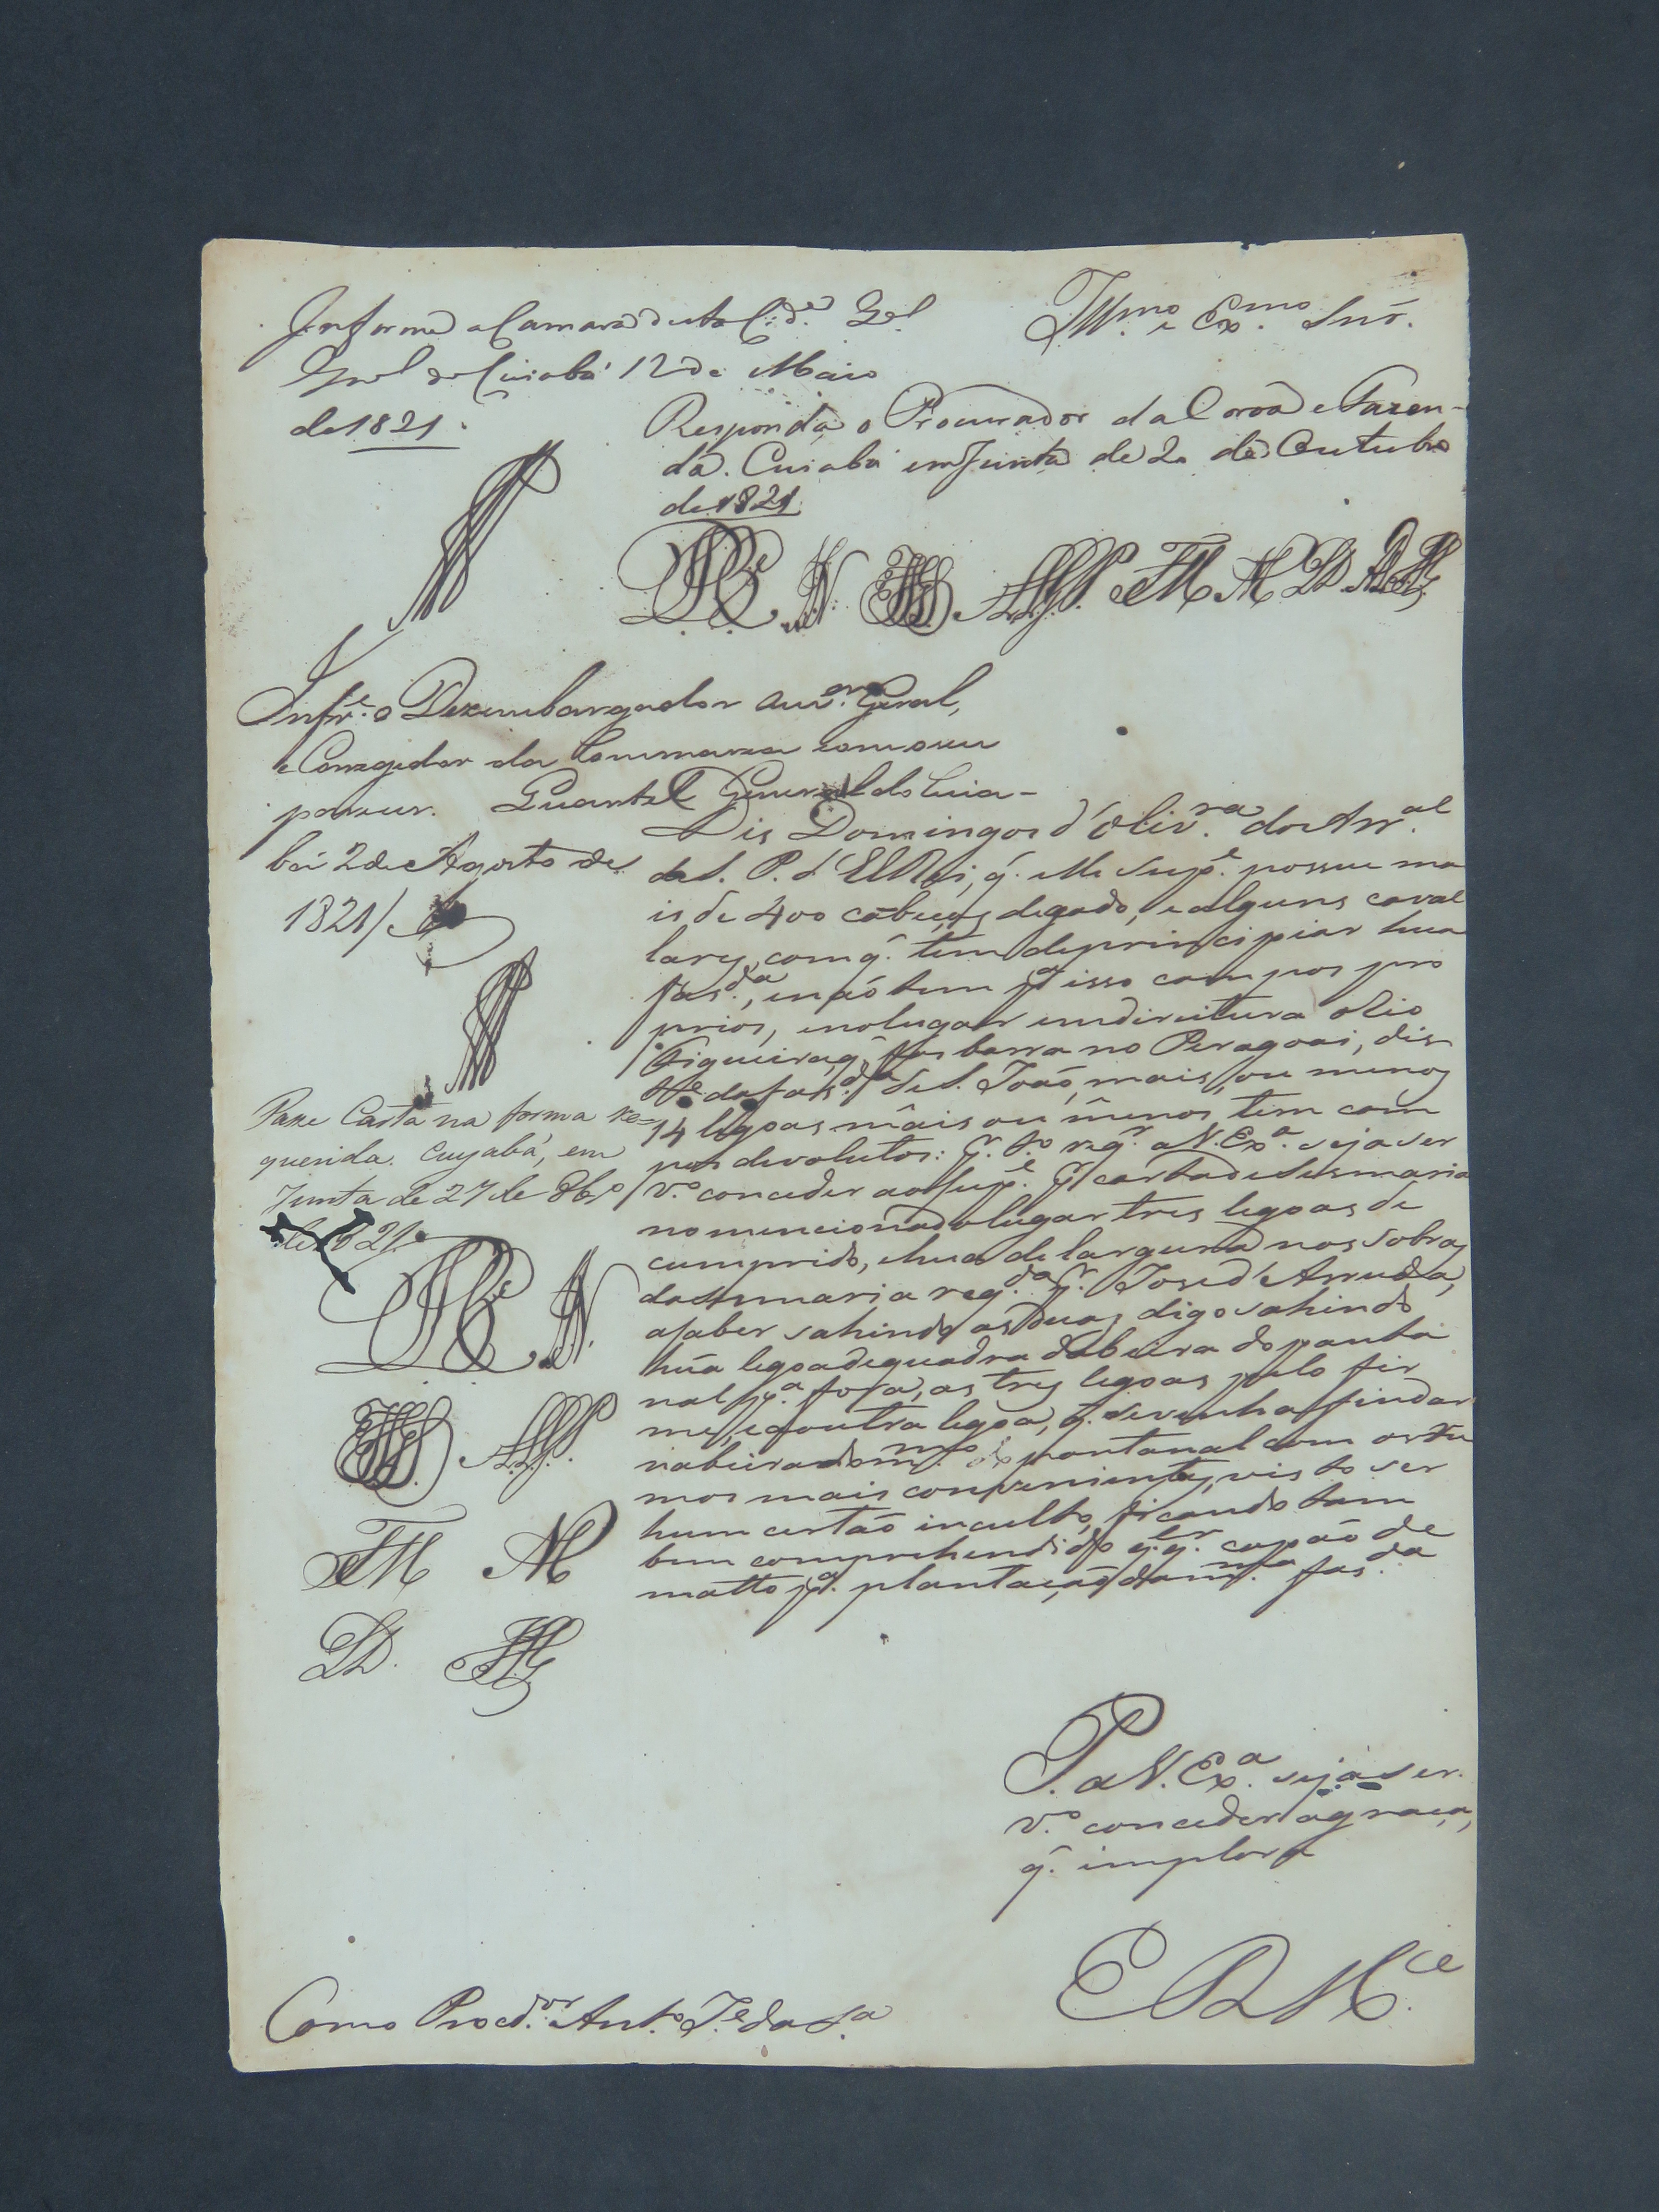 Informe a Camara desta Cid.e Q.el
G.ral do Cuiabá 12 de Maio
de 1821.
Ill.mo e Ex.mo Snr.
Responda o Procurador da Coroa e Fazen-
da. Cuiabá em Junta de 2 de Outubro
de 1821
Infr.e o Dezembargador Ouv.or Geral,
e Corregedor da Commarca com o seu
parecer. Quartel General do Cuia-
bá 2 de Agosto de
1821/
Passe Carta na forma re-
querida. Cuyabá, em
Junta de 27 de 8br.o
de 1821.
Dis Domingos d'Oliv.ra do Arr.al
de S. P. d'ElRei, q. elle Sup.e possue ma
is de 400 cabeças de gado, e alguns caval
lares, com q. tem de principiar hua
fas.da, e não tem p.a isso campos pro
prios, e no lugar em direitura o Rio
Figueira, q. fas barra no Paragoai, dis
t.e da fas.da de S. João, mais, ou menos
14 legoas mais ou menos, tem cam
pos devolutos: P. t.o req.r a V. Ex.a seja ser
v.o conceder ao Sup.e p.r carta de Sesmaria
no mencionado lugar tres legoas de
cumprido, e hua de largura nas sobras
da Sesmaria req.da p.r José d'Arruda,
a saber sahindo as duas, digo sahindo
húa legoa de quadra da beira do panta
nal p.a fora, as tres legoas pelo fir
me, e a outra legoa, q. se venha findar
na beira do m.mo pantanal com os ru
mos mais convenientes, visto ser
hum certão inculto, ficando tam
bem comprehendido q.l q.r capão de
matto p.a plantação da m.ma fas.da
P. a V. Ex.a seja ser
v.o conceder a graça,
q. implora
E R M.ce
Como Procd.or Ant.o J.e da S.a